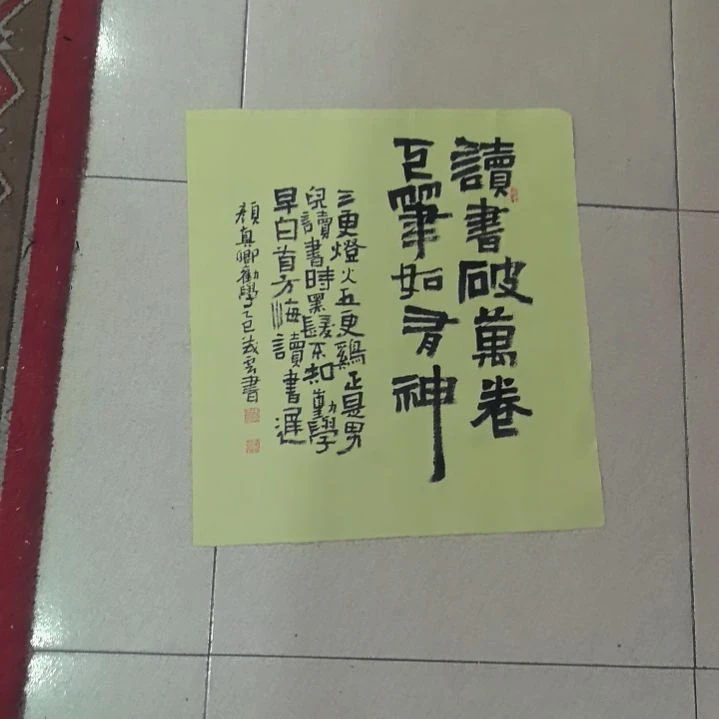 讀書破萬卷
下筆如有神
三更燈火五更鷄正是男
兒讀書時黑髮不知勤學
早白首方悔讀書遲
顏真卿勸學乙巳歲雲書